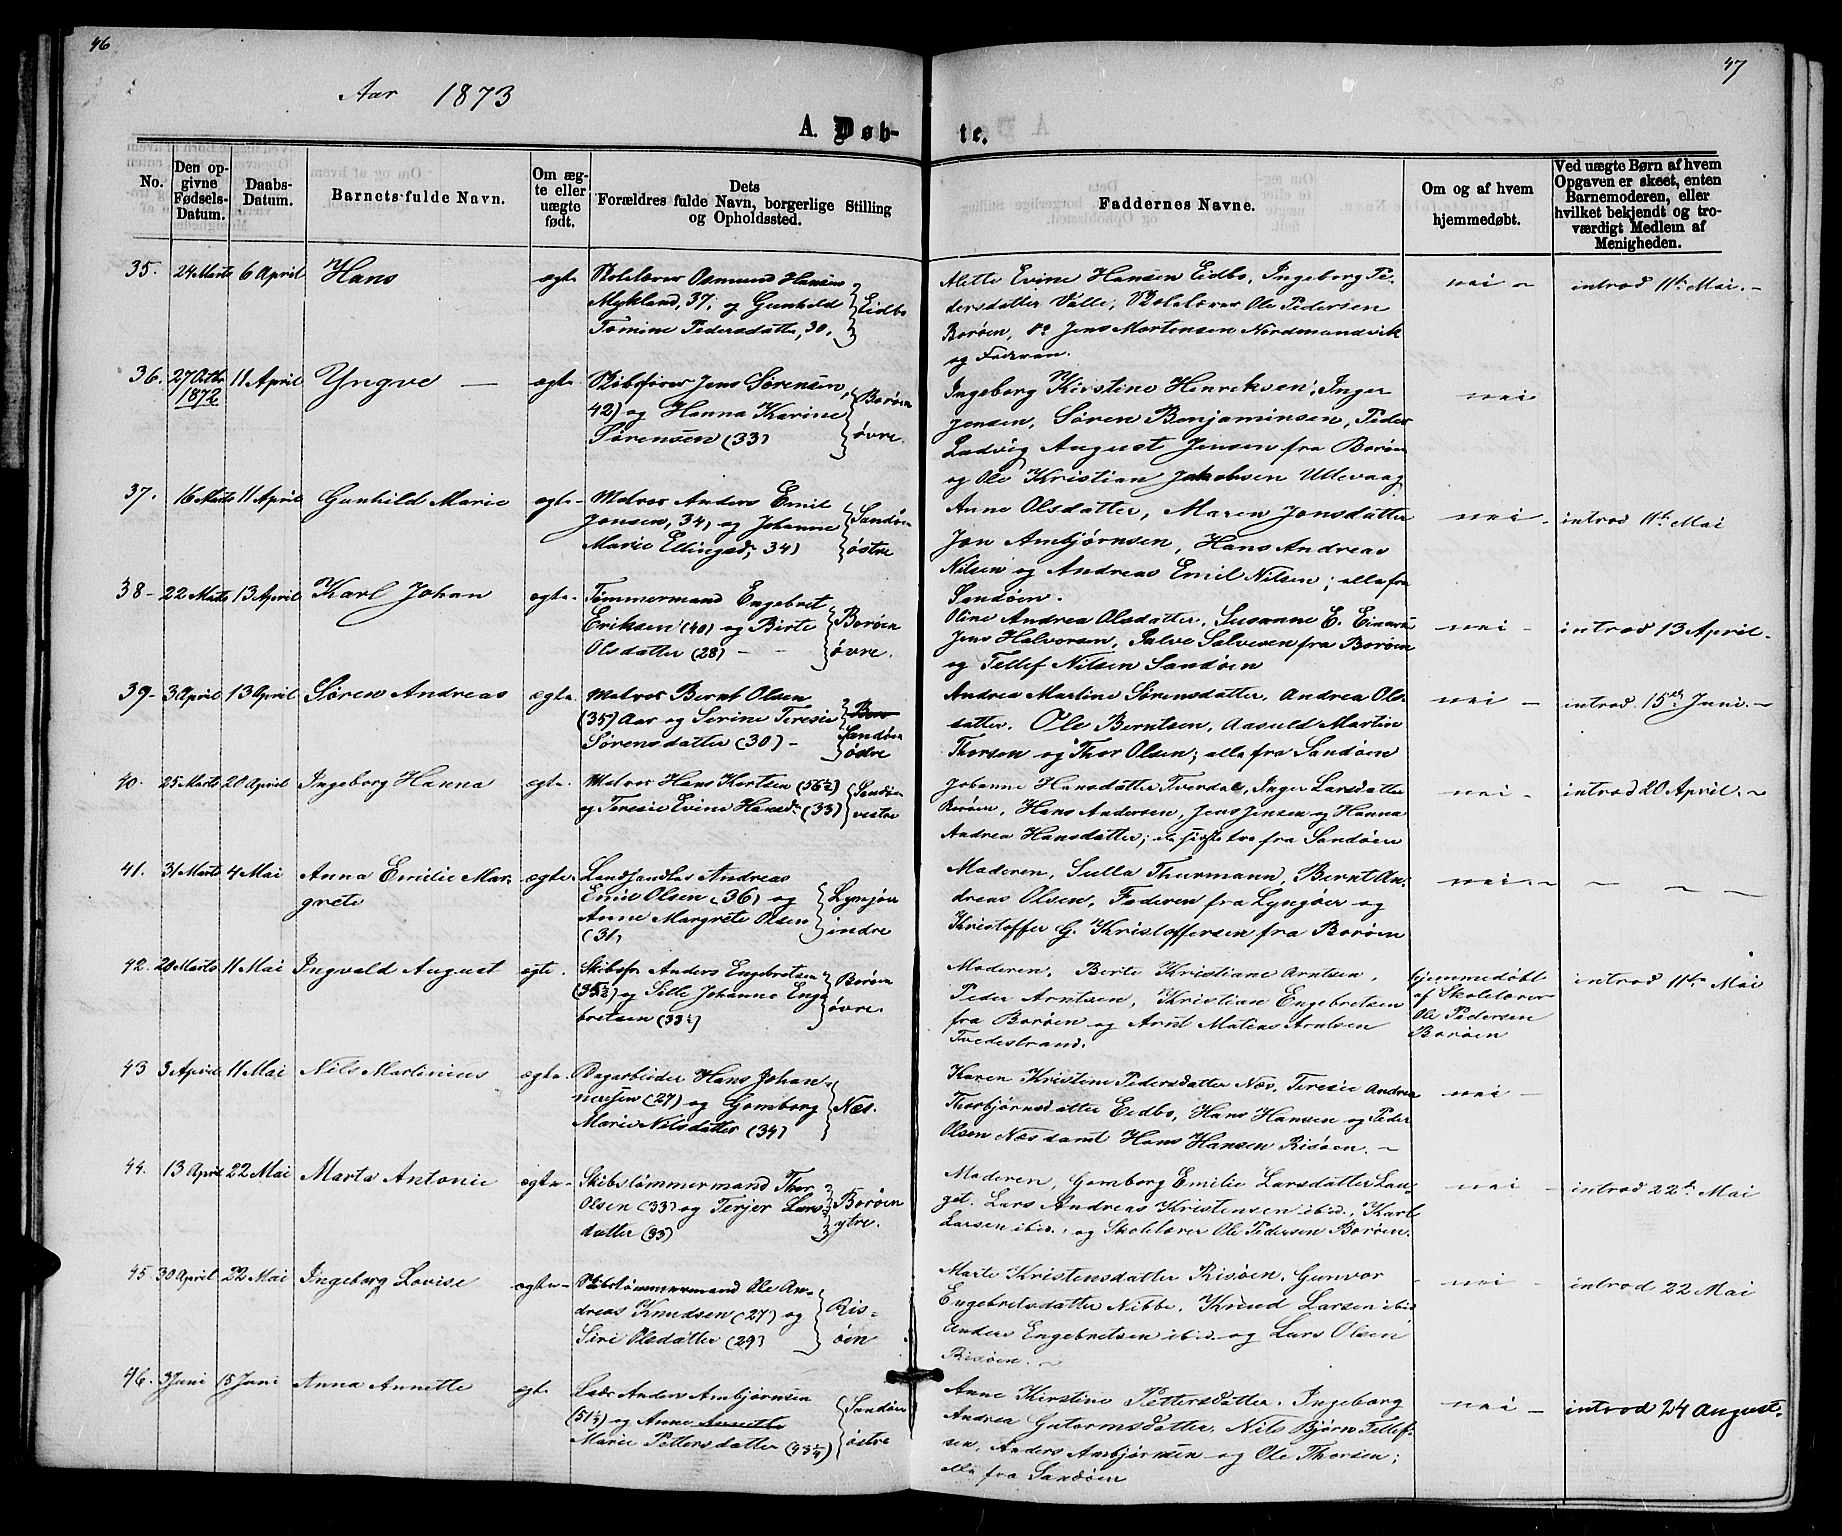 46
47
Aar 1873
A. Døb-
te.
No.
Den op-
givne
Fødsels-
Datum.
Daabs-
Datum.
Barnets fulde Navn.
Om æg-
te eller
uægte
født.
Dets
Forældres fulde Navn, borgerlige Stilling
og Opholdssted.
Faddernes Navne.
Om og af hvem
hjemmedøbt.
Ved uægte Børn af hvem
Opgaven er skeet, enten
Barnemoderen, eller
hvilket bekjendt og tro-
værdigt Medlem af
Menigheden.
35. 24 Marts 6 April Hans ægte
Skolelærer Osmund Hansen
Mykland, 37, og Gunhild
Tomine Pedersdatter, 30,
Eidbo
Mette Evine Hansen Eidbo, Ingeborg Pe-
dersdatter Valle, Skolelærer Ole Pedersen
Borøen, do Jens Mortensen Nordmandvik
og Faderen.
nei -
introd 11te Mai. -
36. 27 Octbr
1872 11 April Yngve - ægte
Skibsfører Jens Sørensen,
42) og Hanna Karine
Sørensen (33)
Borøen
øvre.
Ingeborg Kirstine Henriksen, Inger
Jensen, Søren Benjaminsen, Peder
Ludvig August Jensen fra Borøen
og Ole Kristian Jakobsen Utlevaag
nei
37. 16 Marts 11 April Gunhild Marie ægte -
Matros Anders Emil
Jonsen, 34) og Johanne
Marie Ellingsd, 34)
Sandøen
østre
Anne Olsdatter, Maren Jonsdatter
Jon Ambjørnsen, Hans Andreas
Nilsen og Andreas Emil Nilsen; alle fra
Sandøen.
nei -
introd 11te Mai
38 - 22 Marts 13 April Karl Johan ægte.
Tømmermand Engebret
Eriksen (40) og Birte
Olsdatter (28) - -
Borøen
øvre.
Oline Andrea Olsdatter, Susanne E. Einars
Jens Halvorsen, Salve Salvesen fra Borøen
og Tellef Nilsen Sandøen
nei -
introd 13 April -
39 - 3 April 13 April Søren Andreas ægte.
Matros Bernt Olsen
(35) Aar og Serine Teresie
Sørensdatter (30) -
Bor
Sandøen
østre
Andrea Martine Sørensdatter, Andrea Ols-
datter. Ole Berntsen, Aasuld Martin
Thorsen og Thor Olsen; alle fra Sandøen
nei -
introd. 15de Juni. -
40. 25 Marts 20 April Ingeborg Hanna ægte.
Matros Hans Kortsen (56½)
og Teresie Evine Hansd. (33)
Sandøen
vestre
Johanne Hansdatter Tverdal, Inger Larsdatter
Borøen, Hans Andersen, Jens Jensen og Hanna
Andrea Hansdatter; de sidste tre fra Sandøen
nei -
introd 20 April. -
41. 31 Marts 4 Mai Anna Emilie Mar-
grete ægte.
Landhandler Andreas
Emil Olsen (36) og
Anne Margrete Olsen
(31)
Lyngøer
indre
Moderen, Sulla Thurmann, Bernt An-
dreas Olsen, Faderen fra Lyngøer og
Kristoffer G. Kristoffersen fra Borøen
nei. - - - -
42. 20 Marts 11 Mai Ingvald August ægte.
Skibsfr. Anders Engebretsen
(35½) og Sille Johanne Enge
bretsen (33½)
Borøen
øvre.
Moderen, Berte Kristiane Arntsen,
Peder Arntsen, Kristian Engebretsen
fra Borøen og Arnt Matias Arntsen
Tvedestrand.
hjemmedøbt
af Skolelærer
Ole Pedersen
Borøen
introd 11te Mai
43 3 April 11 Mai Nils Martinius ægte.
Dagarbeider Hans Johan-
nesen (27) og Gomborg
Marie Nilsdatter (34)
Næs.
Karen Kristine Pedersdatter Næs, Teresie Andrea
Thorbjørnsdatter Eidbo, Hans Hansen og Peder
Olsen Næs samt Hans Hansen Risøen. -
nei -
44. 13 April 22 Mai Marta Antonie ægte -
Skibstømmermand Thor
Olsen (33) og Terjer Lars-
datter (33)
Borøen
ytre.
Moderen, Gomborg Emilie Larsdatter Lan-
get. Lars Andreas Kristensen ibid., Karl
Larsen ibid., og Skolelærer Ole Pedersen Borøen.
nei -
introd 22de Mai
45 30 April 22 Mai Ingeborg Lovise ægte -
Skibstømmermand Ole An-
dreas Knudsen (27) og
Siri Olsdatter (29)
Ris-
øen
Marte Kristensdatter Risøen, Gunvor
Engebretsdatter Nibbe, Knud Larsen ibid
Anders Engebretsen ibid og Lars Olsen
Risøen. -
nei -
introd 22 Mai
46. 3 Juni 15 Juni Anna Annette ægte
Lods Anders Ambjørnsen
(51½) og Anne Annette
Marie Pettersdatter (33¼)
Sandøen
østre
Anne Kirstine Pettersdatter. Ingeborg
Andrea Gutormsdatter, Nils Bjørn Tellef-
sen, Anders Ambjørnsen og Ole Thorsen;
alle fra Sandøen
nei -
introd 24 August.